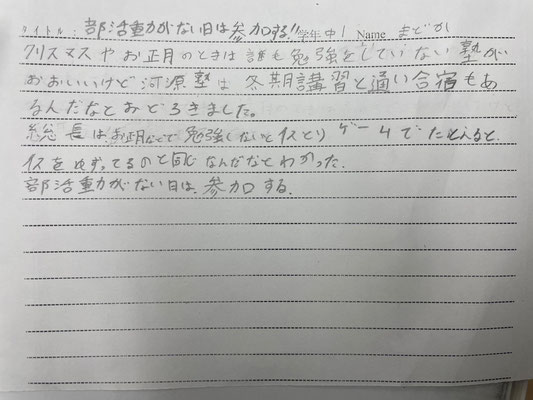 タイトル: 部活動がない日は参加する!! 学年 中1 Name まどか
クリスマスやお正月のときは誰も勉強をしていない塾が
おおいいけど河源塾は冬期講習と通い合宿もあ
るんだなとおどろきました。
総長はお正月などで勉強しないとイスとりゲームでたとえると
イスをゆずってるのと同じなんだなとわかった.
部活動がない日は、参加する.